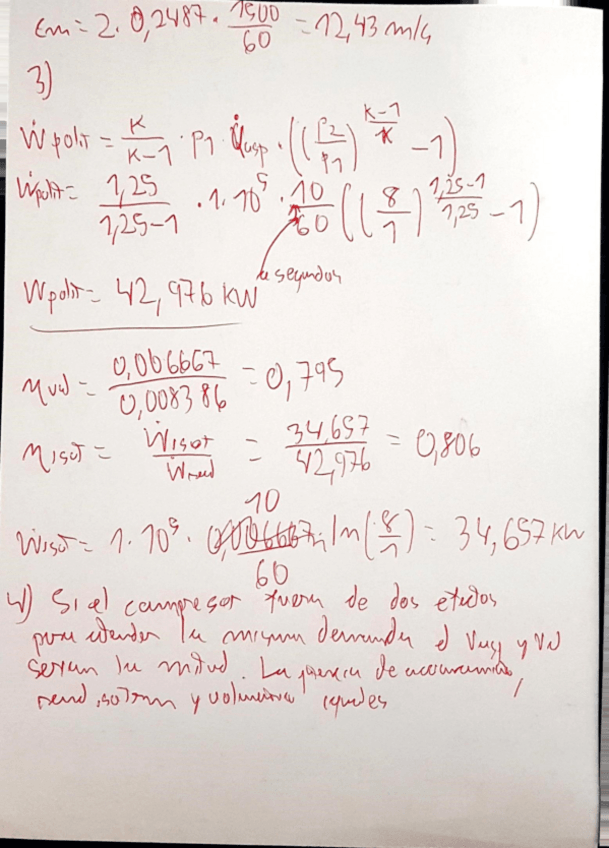 Cm = 2 · 0,2487 · 1500/60 = 12,43 m/s
3)
Ẇpolit = K/(K-1) · P1 · V̇asp · ((P2/P1)^((K-1)/K) - 1)
Ẇpolit = 1,25/(1,25-1) · 1·10^5 · 10/60 ((8/1)^((1,25-1)/1,25) - 1)
a segundos
Ẇpolit = 42,976 KW
ηvol = 0,006667/0,008386 = 0,795
ηisot = Ẇisot/Ẇreal = 34,657/42,976 = 0,806
Ẇisot = 1·10^5 · 10/60 ln(8/1) = 34,657 KW
4) Si el compresor fuera de dos etapas
para atender la misma demanda el Vasp y Vd
serían la mitad. La potencia de accionamiento,
rend. isoterm y volumétrico iguales